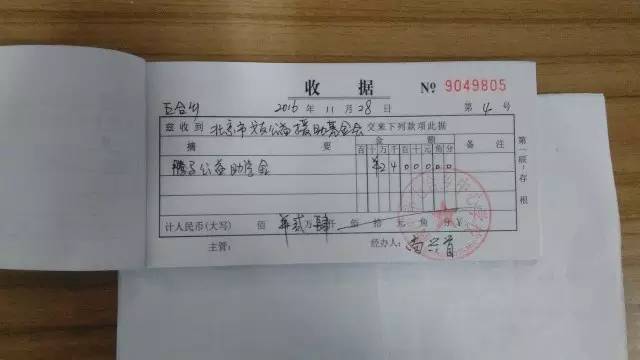 收 据 № 9049805
2016 年 11 月 28 日 第 4 号
兹收到 北京市 公益援助基金会 交来下列款项此据
摘 要 金 额 备 注
百 十 万 千 百 十 元 角 分
公益助学金 ¥ 2 4 0 0 0 0 0
计人民币(大写) 佰 贰 万 肆 仟 佰 拾 元 角 分 ¥
主管: 经办人:
第一联:存根